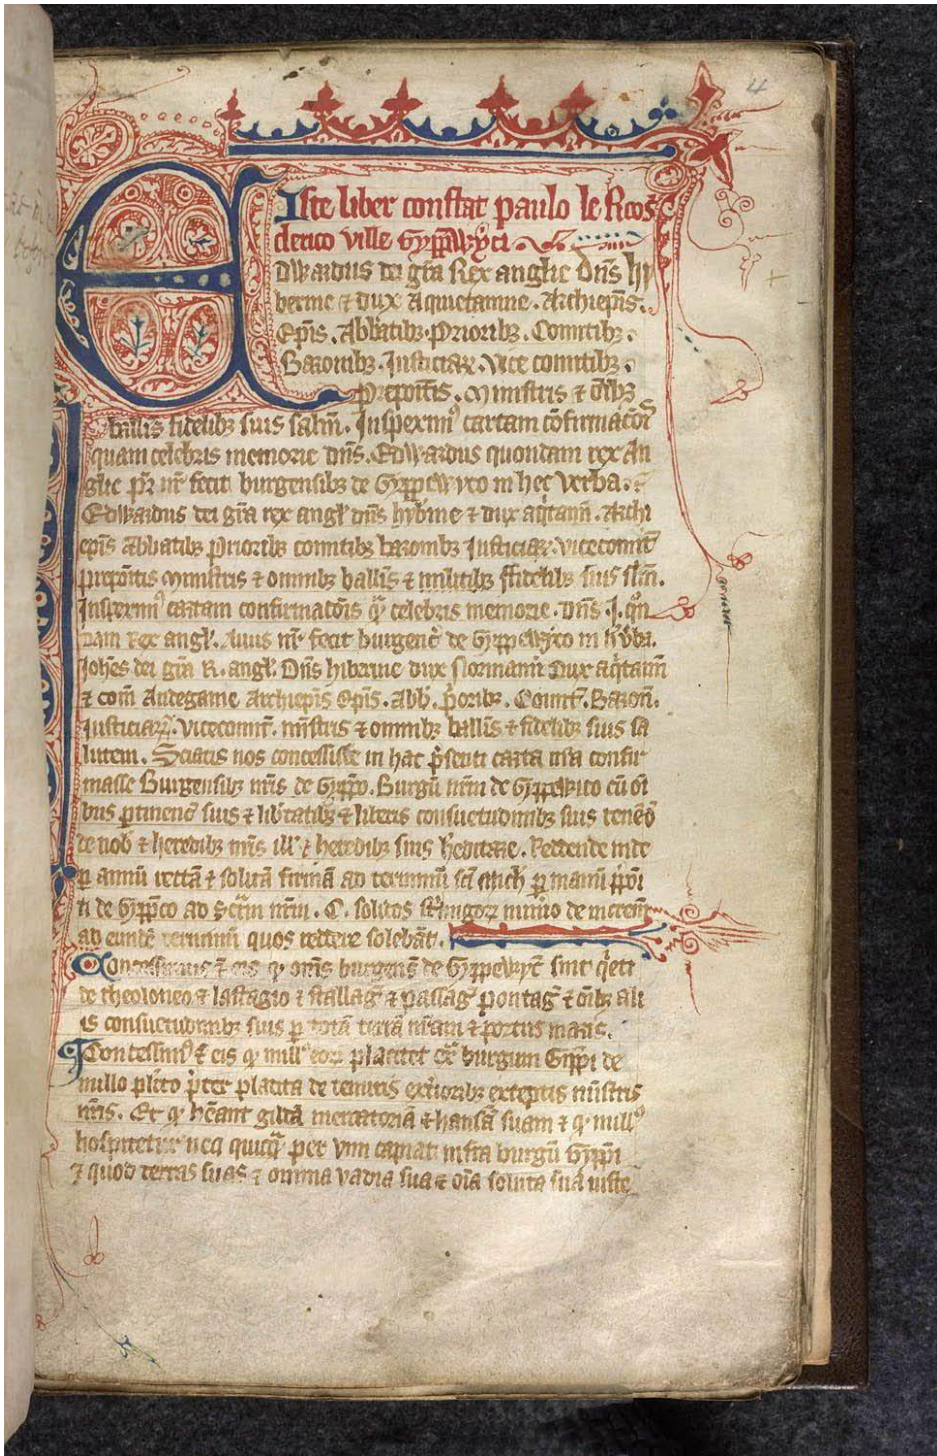 4
Iste liber constat paulo le Roos
clerico ville Gyppewyci
Edwardus dei gr̄a Rex anglie Dn̄s hy
bernie ⁊ dux Aquietannie. Archiep̄is.
Ep̄is. Abb̄atibꝫ. Prioribꝫ. Comitibꝫ.
Baronibꝫ. Justiciar̄. Vice comitibꝫ.
Prepositis. Ministris ⁊ om̄ibꝫ
ballis fidelibꝫ suis salt̄m. Inspeximꝰ cartam cōfirmacōīs
quam celebris memorie dn̄s. Edwardus quondam rex An
glie pr̄ nr̄ fecit burgensibꝫ de Gyppewyco in hec verba.
Edwardus dei gr̄a rex angl̄ dn̄s hyb̄nie ⁊ dux aq̄tann̄. Archi
ep̄is Abbatibꝫ Prioribꝫ comitibꝫ baronibꝫ Justiciar̄. vicecomit̄
prepositis ministris ⁊ omnibꝫ ballis ⁊ fidelibꝫ suis sl̄m.
Inspeximꝰ cartam confirmatōis q̄ celebris memorie. Dn̄s. J. q̄n
dam Rex angl̄. Auus nr̄ fecit burgenc̄ de Gyppewyco in h̄ v̄ba.
Joh̄es dei gr̄a R. angl̄. Dn̄s hibernie dux Normann̄ Dux aq̄tann̄
⁊ com̄ Andegauie Archiep̄is Ep̄is. Abb̄. p̄oribꝫ. Comit̄. Baron̄.
Justiciar̄. vicecomit̄. mīstris ⁊ omnibꝫ ballis ⁊ fidelibꝫ suis sa
lutem. Sciatis nos concessisse in hac p̄senti carta nr̄a confir
masse Burgensibꝫ nr̄is de Gyppo. Burgū nr̄m de Gyppewico cū oī
bus p̄tinenc̄ suis ⁊ lib̄tatibꝫ ⁊ liberis consuetudinibꝫ suis tenēd̄
de nob̄ ⁊ heredibꝫ nr̄is ill̄ ⁊ heredibꝫ suis h̄editarie. Reddende inde
p annū rectā ⁊ solitā firmā ad terminū sc̄i Mich̄ p manū p̄posi
ti de Gyppco ad sc̄c̄m nr̄m. C. solidos st̄lingoꝝ nūmo de increm̄
ad eundē terminū quos reddere solebāt.
Concessimus ⁊ eis qd̄ om̄s burgens̄ de Gyppewyc̄ sint q̄eti
de theoloneo ⁊ lastagio ⁊ stallaḡ ⁊ passaḡ pontaḡ ⁊ om̄ibꝫ ali
is consuetudinibꝫ suis p totā terrā nr̄am ⁊ portus maris.
Concessimꝰ ⁊ eis qd̄ nullꝰ eoꝝ placitet ext̄ burgum Gippi de
nullo pl̄ito p̄ter placita de tenuris ext̄ioribꝫ exceptis ministris
nr̄is. Et qd̄ hēant gildā mercatoriā ⁊ hansā suam ⁊ qd̄ nullꝰ
hospitetur neqꝫ quicq̄ per vim capiat infra burgū Gyppi
⁊ quod terras suas ⁊ omnia vadia sua ⁊ oīa soluta sua iuste